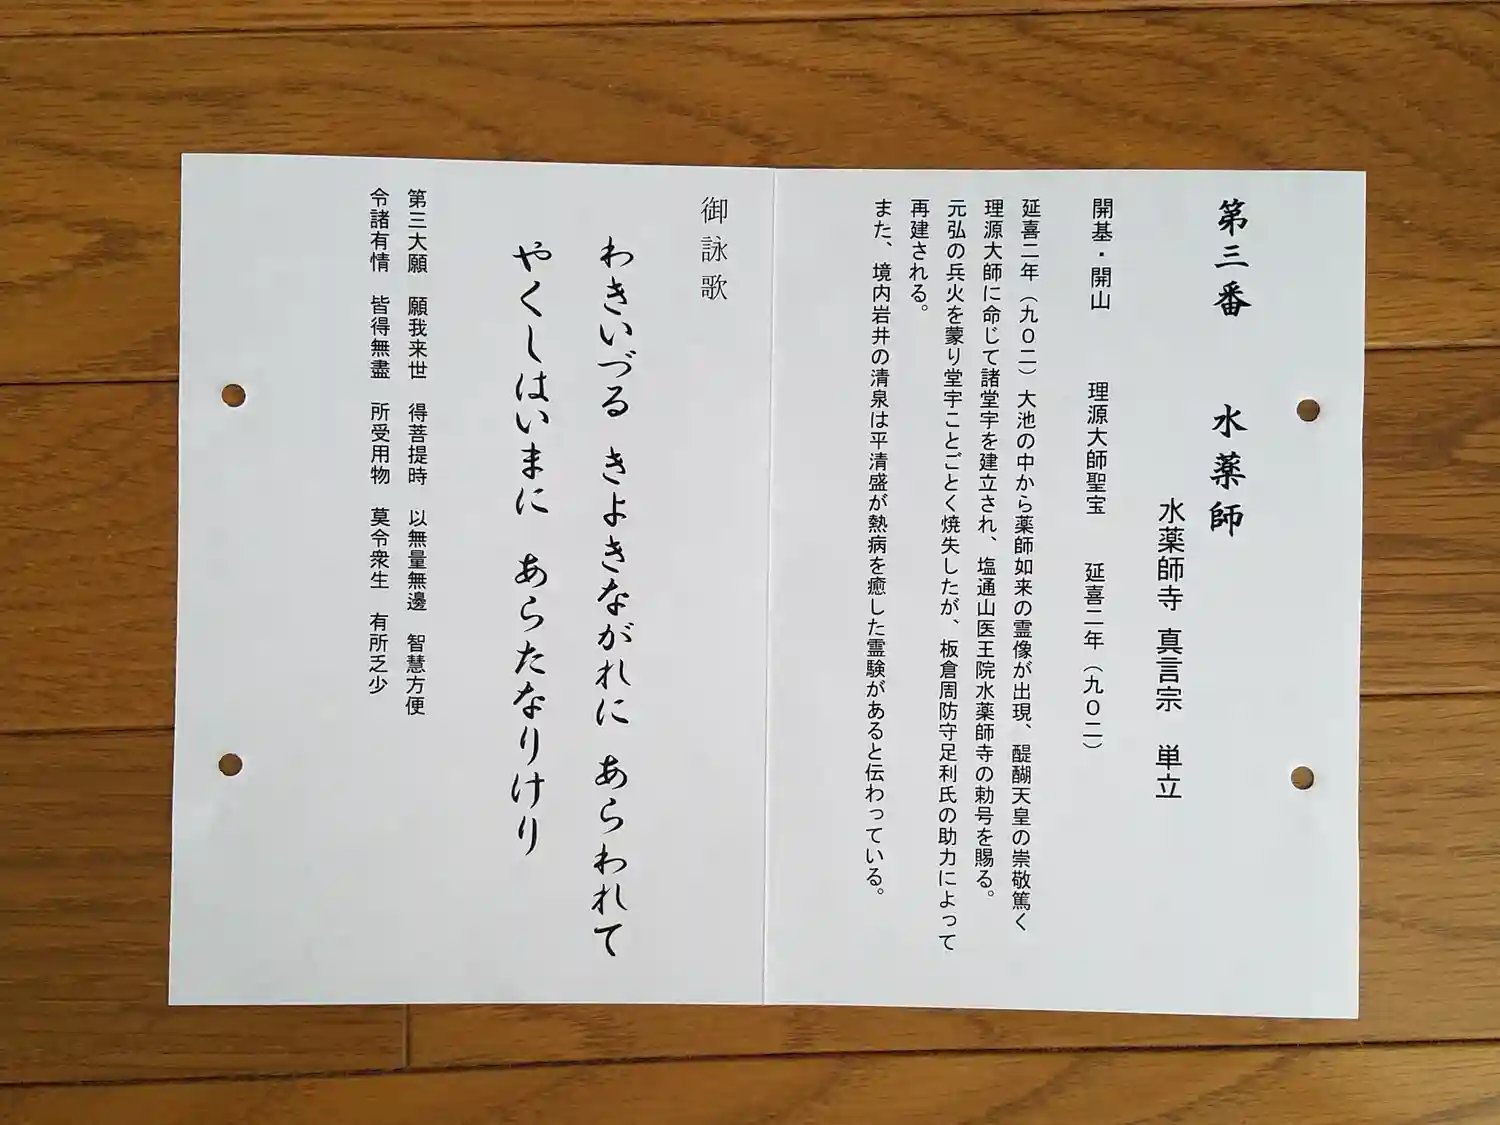 第三番　水薬師
水薬師寺　真言宗　単立
開基・開山　理源大師聖宝　延喜二年（九〇二）
延喜二年（九〇二）大池の中から薬師如来の霊像が出現、醍醐天皇の崇敬篤く
理源大師に命じて諸堂宇を建立され、塩通山医王院水薬師寺の勅号を賜る。
元弘の兵火を蒙り堂宇ことごとく焼失したが、板倉周防守足利氏の助力によって
再建される。
また、境内岩井の清泉は平清盛が熱病を癒した霊験があると伝わっている。
御詠歌
わきいづる　きよきながれに　あらわれて
やくしはいまに　あらたなりけり
第三大願　願我来世　得菩提時　以無量無邊　智慧方便
令諸有情　皆得無盡　所受用物　莫令衆生　有所乏少